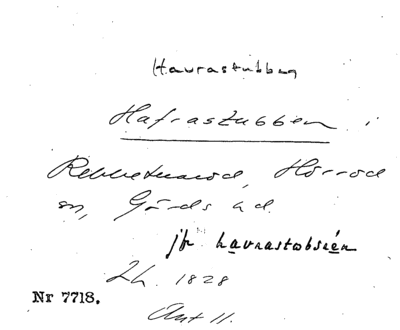 Havrastubben
Hafrastubben i
Rebbetuaröd, Hörröd
sn, Gärds hd.
jfr havrastobseen
Lh. 1828
Nr 7718.
Akt 11.